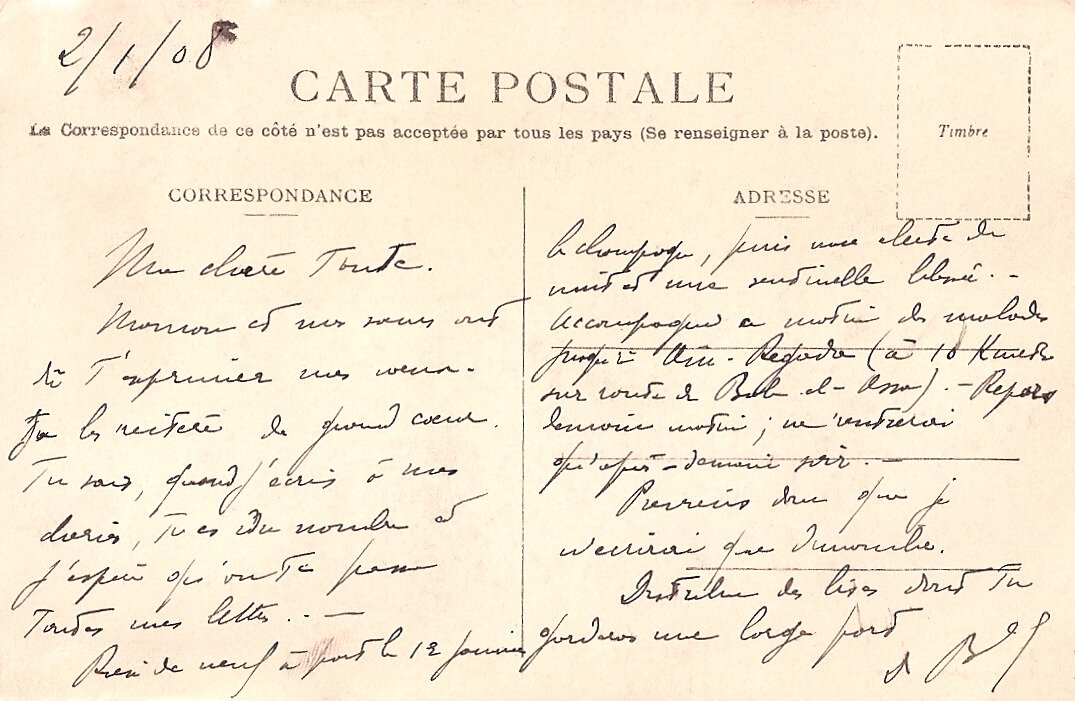 2/1/08
CARTE POSTALE
La Correspondance de ce côté n'est pas acceptée par tous les pays (Se renseigner à la poste).
Timbre
CORRESPONDANCE
Ma chère Tante.
Maman et mes sœurs ont
dû t'exprimer mes vœux.
Je les réitère de grand cœur.
Tu sais, quand j'écris à mes
chéries, tu es du nombre et
j'espère qu'on te passe
toutes mes lettres. . —
Rien de neuf à part le 12 janvier
ADRESSE
le champagne, puis une alerte de
nuit et une sentinelle blessée. —
Accompagné ce matin des malades
jusqu'à (à 10 Kmètres
sur route de Bab-el-Assa). — Repars
demain matin ; ne rentrerai
qu'après-demain soir. —
Préviens donc que je
n'écrirai que Dimanche.
Distribue des bises dont tu
garderas une large part